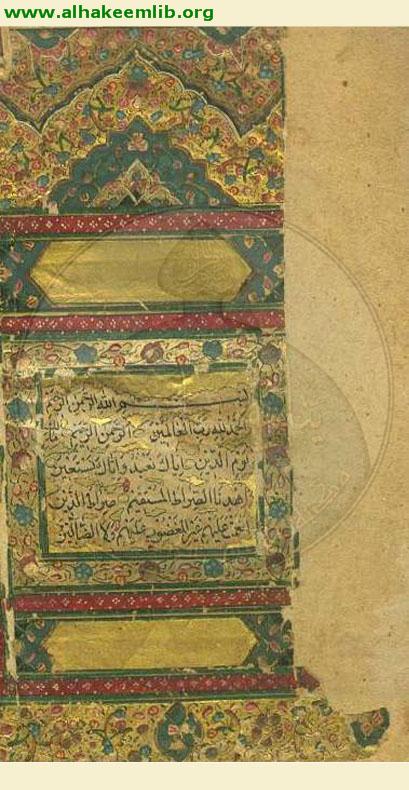 www.alhakeemlib.org
بسم الله الرحمن الرحيم
الحمد لله رب العالمين الرحمن الرحيم مالك
يوم الدين اياك نعبد واياك نستعين
اهدنا الصراط المستقيم صراط الذين
انعمت عليهم غير المغضوب عليهم ولا الضالين